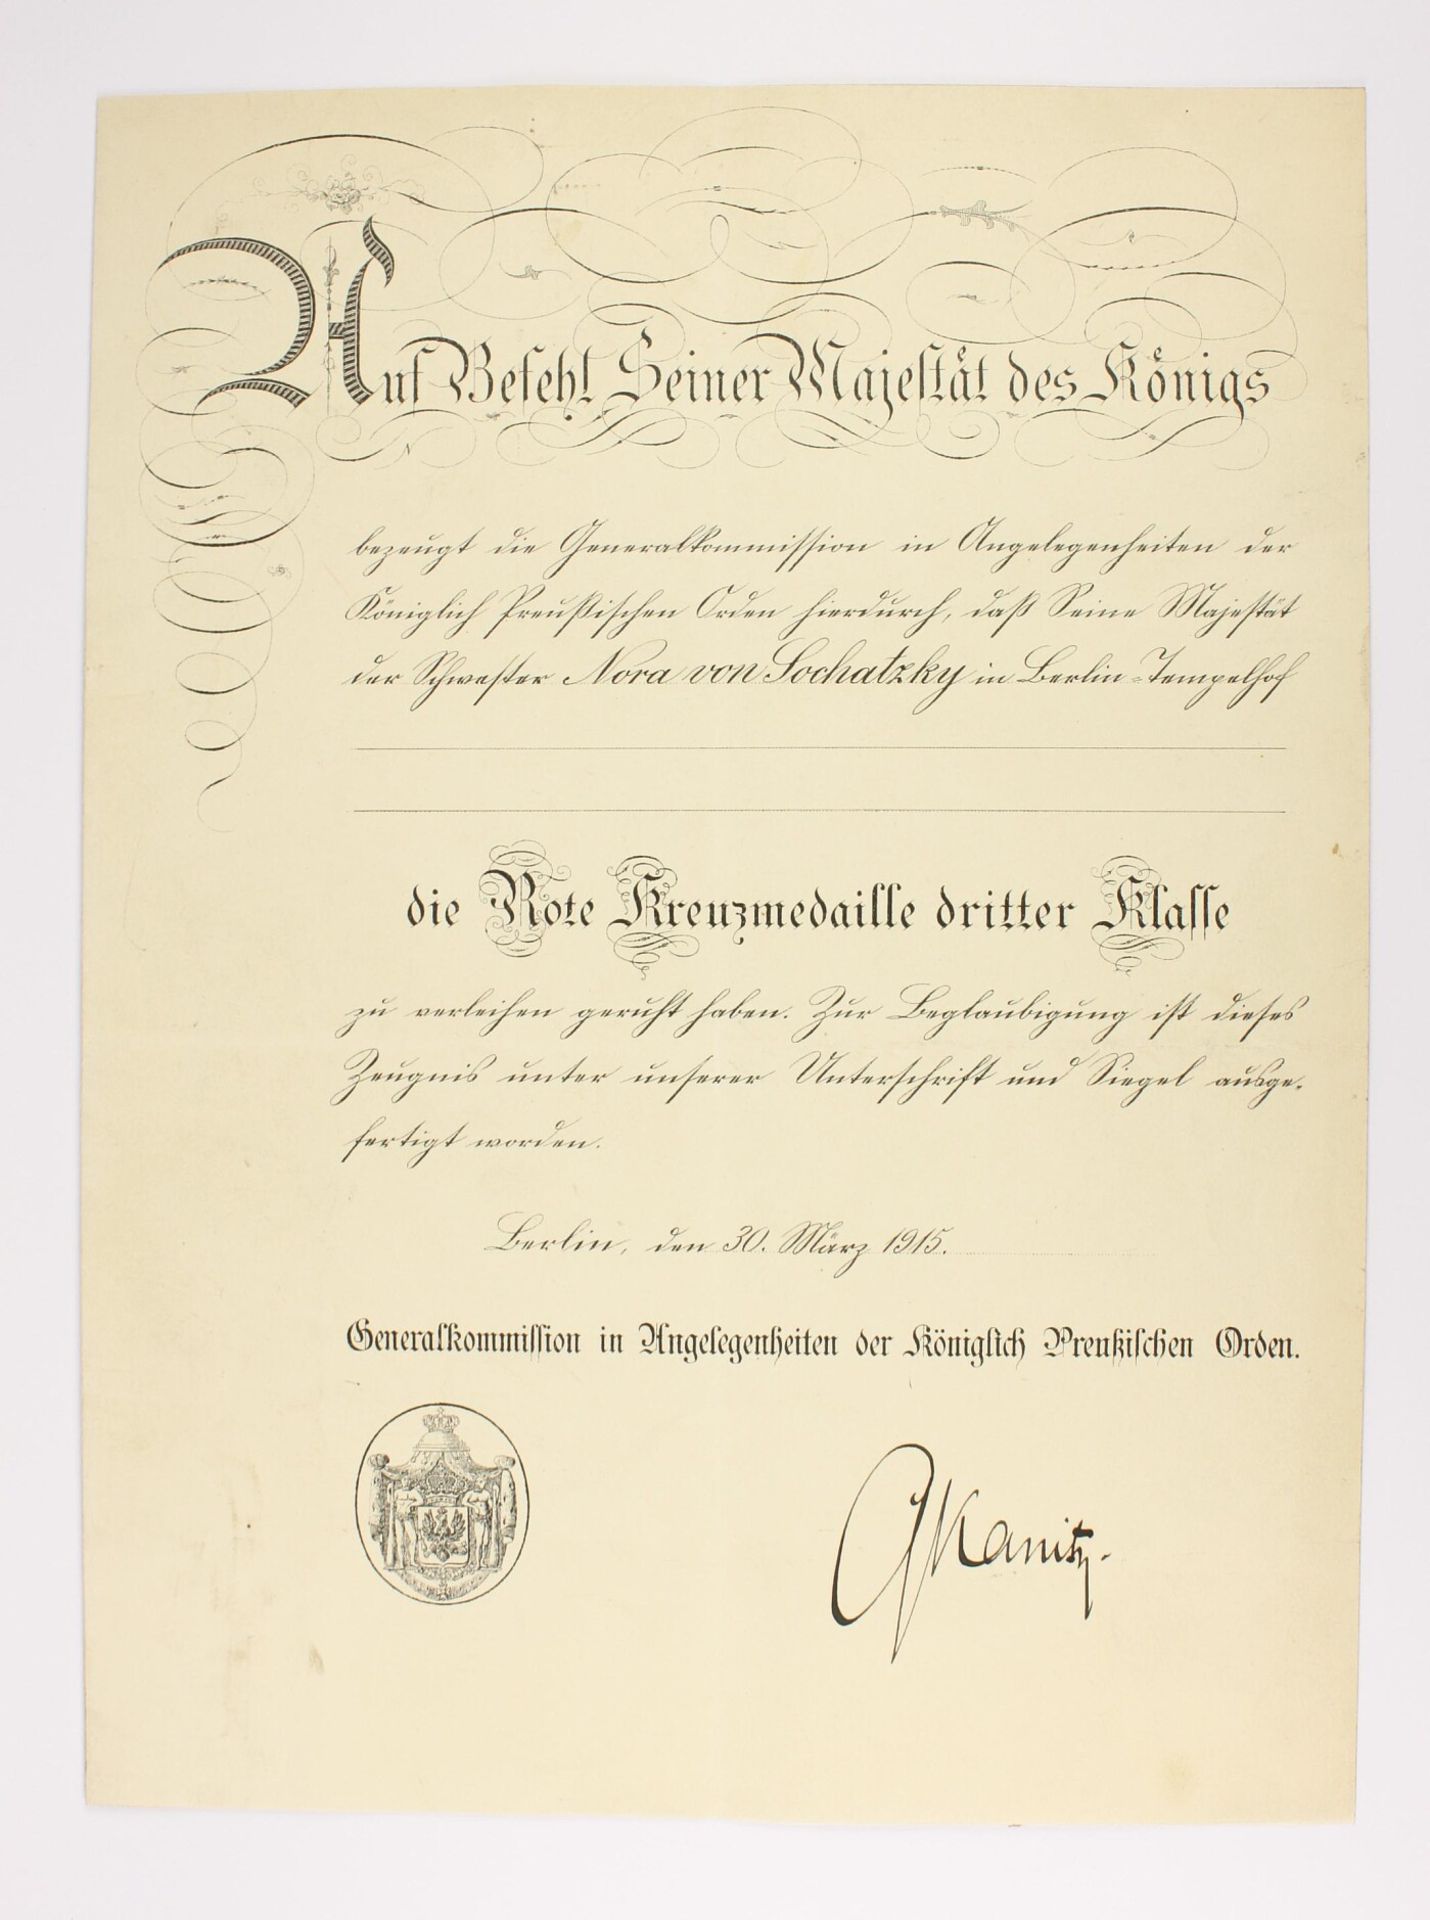 Auf Befehl Seiner Majestät des Königs
bezeugt die Generalkommission in Angelegenheiten der
Königlich Preußischen Orden hierdurch, daß Seine Majestät
der Schwester Nora von Sochatzky in Berlin-Tempelhof
die Rote Kreuzmedaille dritter Klasse
zu verleihen geruht haben. Zur Beglaubigung ist dieses
Zeugnis unter unserer Unterschrift und Siegel ausge-
fertigt worden.
Berlin, den 30. März 1915.
Generalkommission in Angelegenheiten der Königlich Preußischen Orden.
Kanitz.